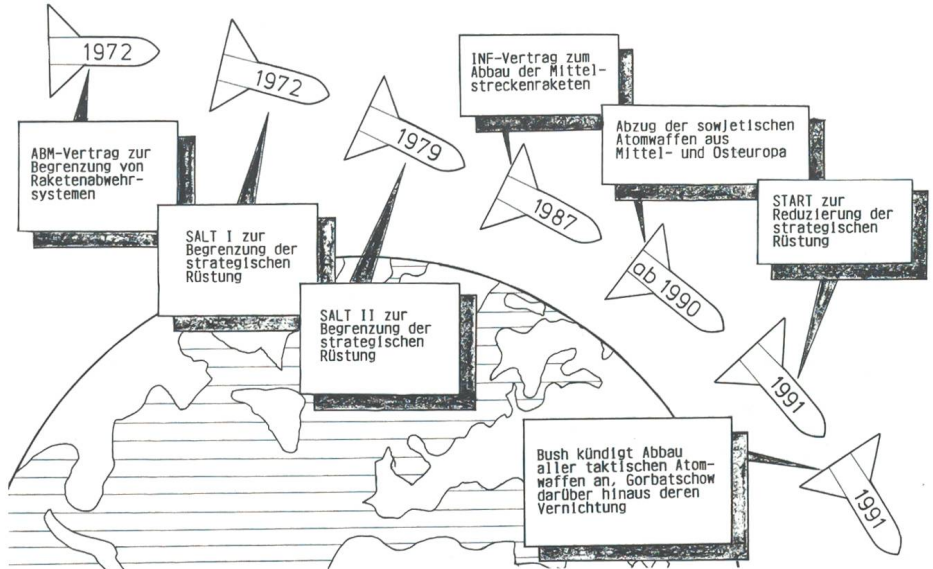 1972
ABM-Vertrag zur
Begrenzung von
Raketenabwehr-
systemen
1972
SALT I zur
Begrenzung der
strategischen
Rüstung
1979
SALT II zur
Begrenzung der
strategischen
Rüstung
INF-Vertrag zum
Abbau der Mittel-
streckenraketen
1987
Abzug der sowjetischen
Atomwaffen aus
Mittel- und Osteuropa
ab 1990
START zur
Reduzierung der
strategischen
Rüstung
1991
Bush kündigt Abbau
aller taktischen Atom-
waffen an, Gorbatschow
darüber hinaus deren
Vernichtung
1991